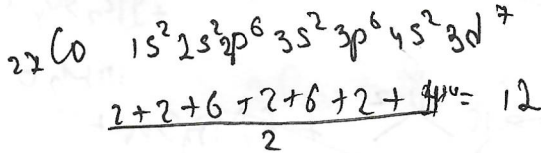 ₂₇Co 1s² 2s² 2p⁶ 3s² 3p⁶ 4s² 3d⁷
2+2+6+2+6+2+ = 12
2